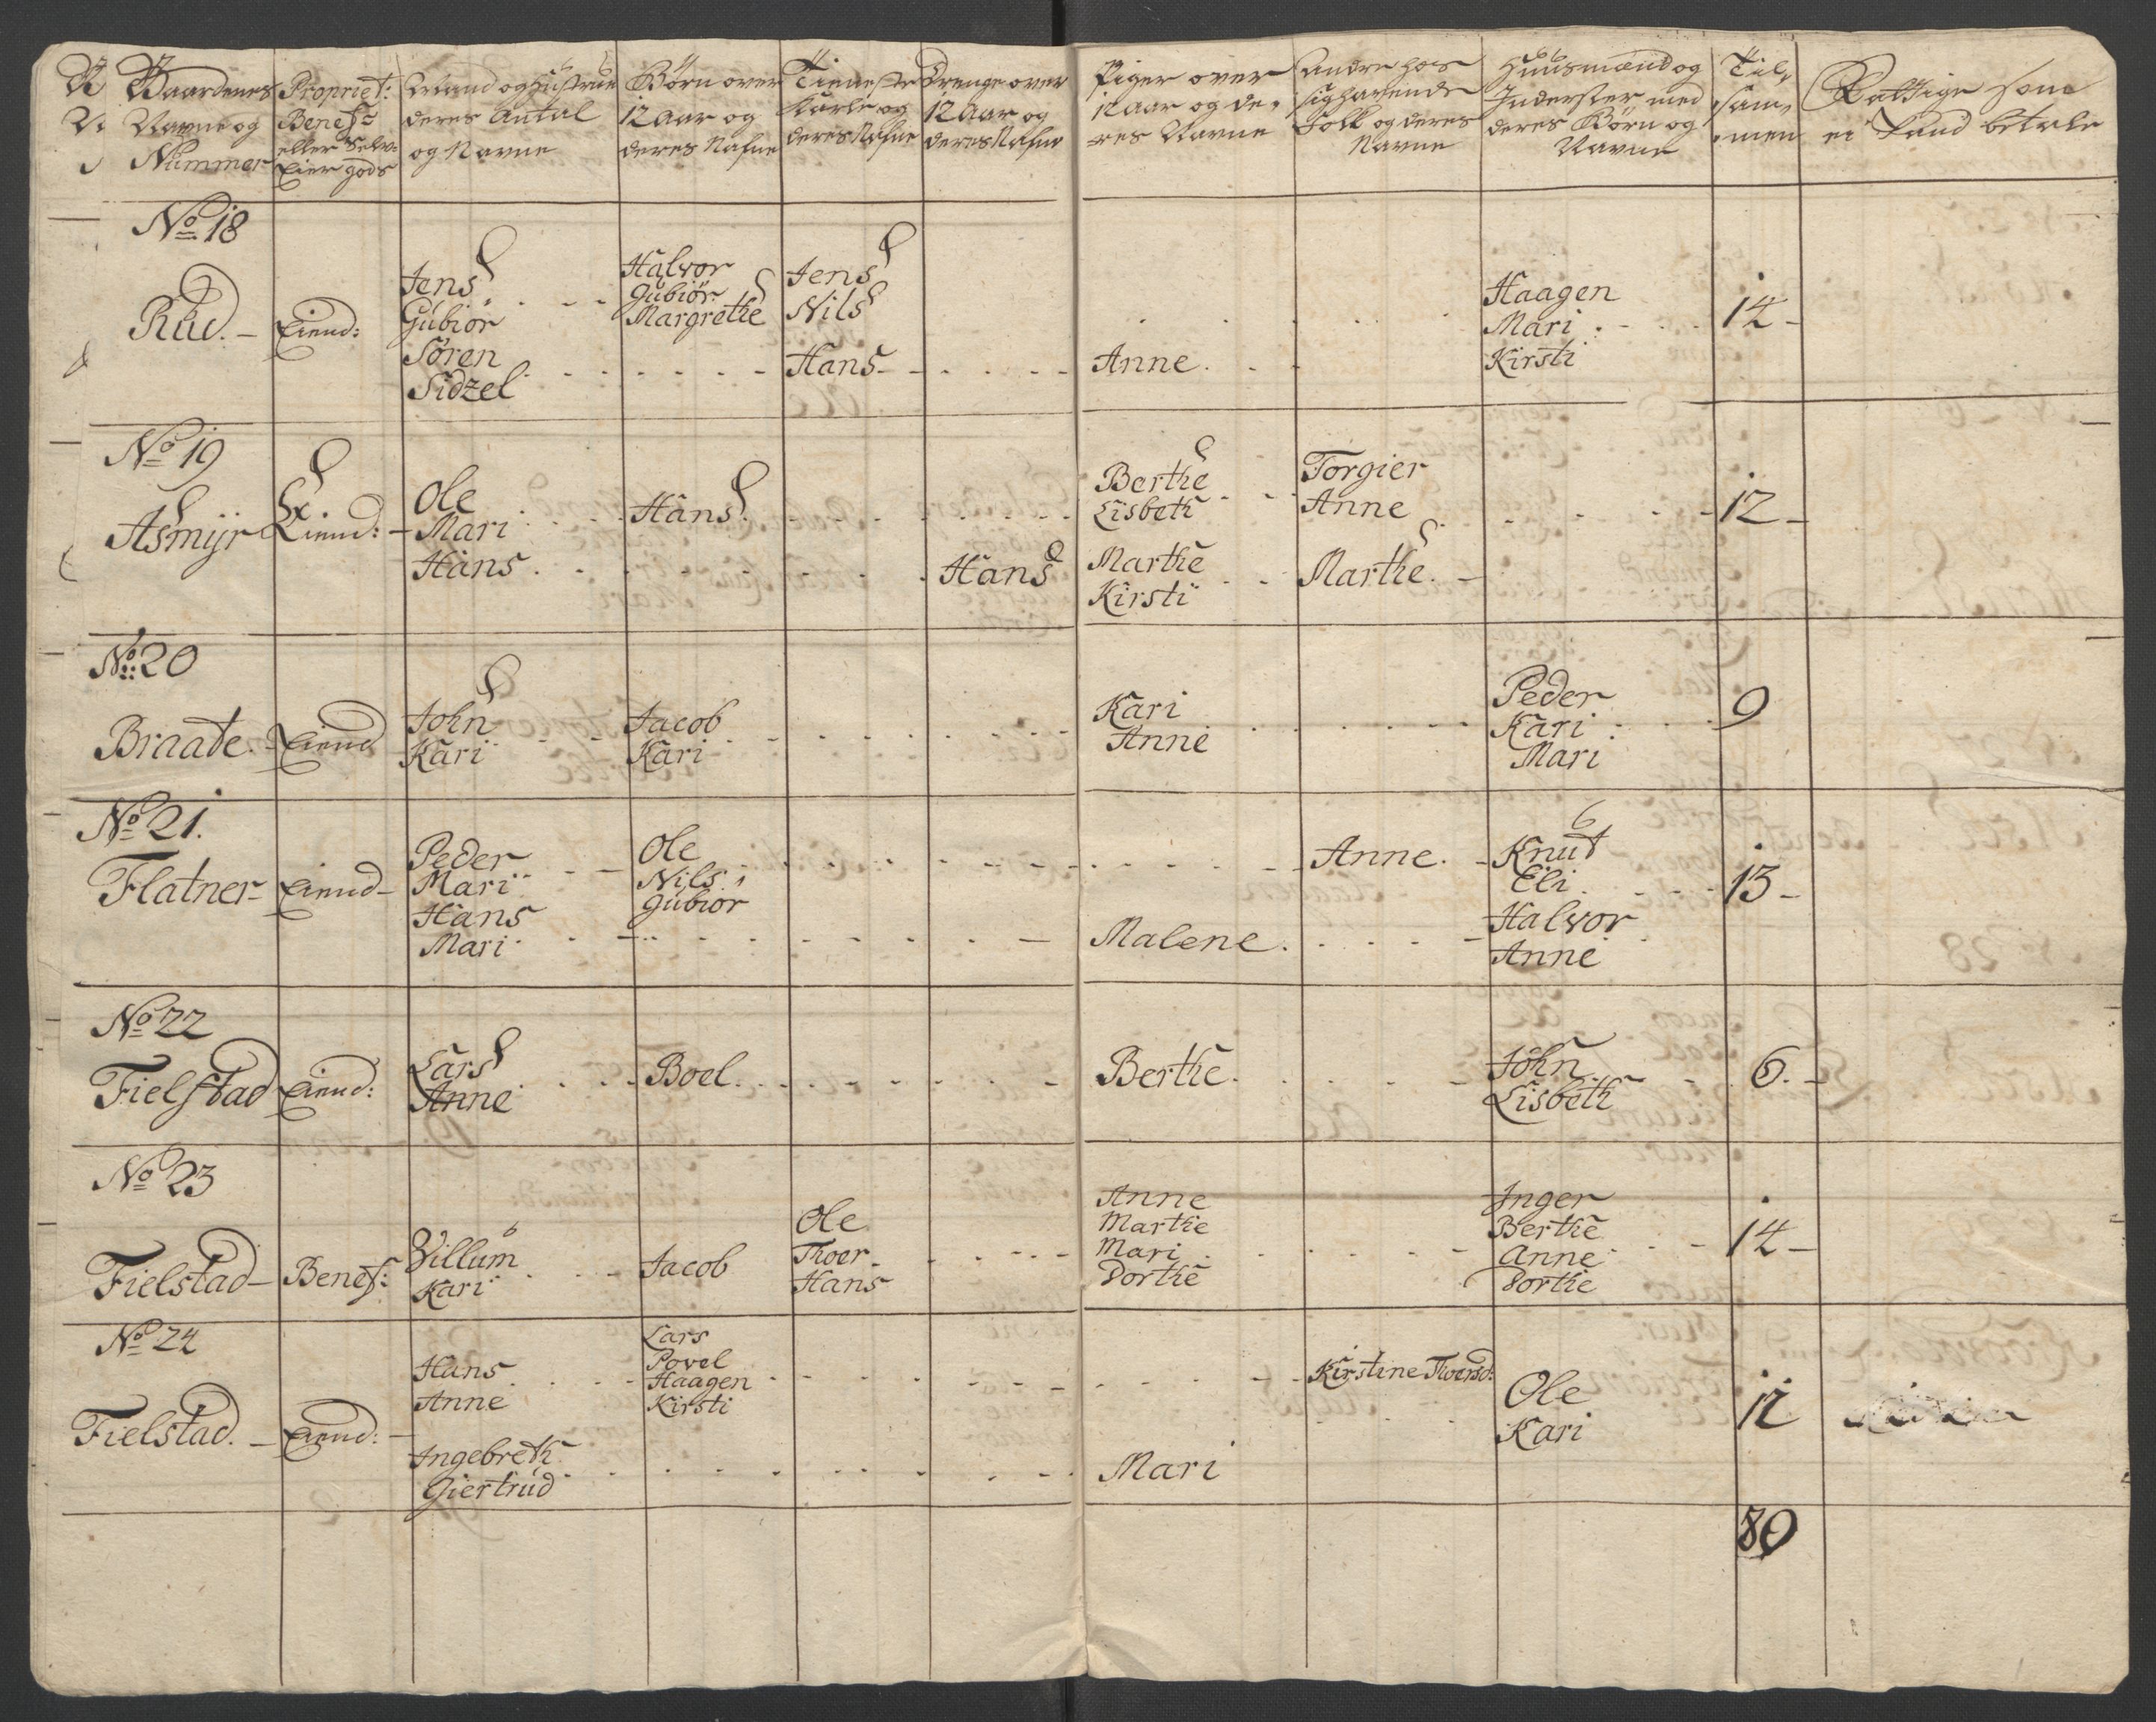 Gaardenes
Navne og
Nummer
Propriet:
Benef:
eller Selv-
Eier gods
Mand og Hustrue
deres Antal
og Navne
Børn over
12 Aar og
deres Nafne
Tieneste
Karle og
deres Nafne
Drenge over
12 Aar og
deres Nafne
Piger over
12 Aar og de-
res Navne
Andre hos
sig havende
Folk og deres
Navne
Huusmænd og
Inderster med
deres Børn og
Navne
Til-
sam-
men
Fattige som
ei kand betale
No 18
Rud. - Eiend:
Jens
Gubiør
Søren
Sidzel
Halvor
Gubiør
Margrethe
Jens
Nils
Hans
Anne.
Haagen
Mari
Kirsti
14
No 19
Asmyr Eiend:
Ole
Mari
Hans
Hans
Hans
Berthe
Lisbeth
Marthe
Kirsti
Torgier
Anne
Marthe.
12
No: 20
Braate. Eiend
John
Kari
Jacob
Kari
Kari
Anne
Peder
Kari
Mari
9
No 21.
Flatner Eiend
Peder
Mari
Hans
Mari
Ole
Nils
Gubiør
Malene.
Anne.
Knud
Eli
Halvor
Anne
13
No 22
Fielstad Eiend:
Lars
Anne
Boel.
Berthe.
John
Lisbeth
6.
No 23
Fielstad Benef:
Villum
Kari
Jacob
Ole
Thoer
Hans
Anne
Marthe
Mari
Dorthe
Inger
Berthe
Anne
Dorthe
14
No 24
Fielstad. Eiend:
Hans
Anne
Ingebreth
Giertrud
Lars
Povel
Haagen
Kirsti
Mari
Kirstine Thoersd:
Ole
Kari
12
80